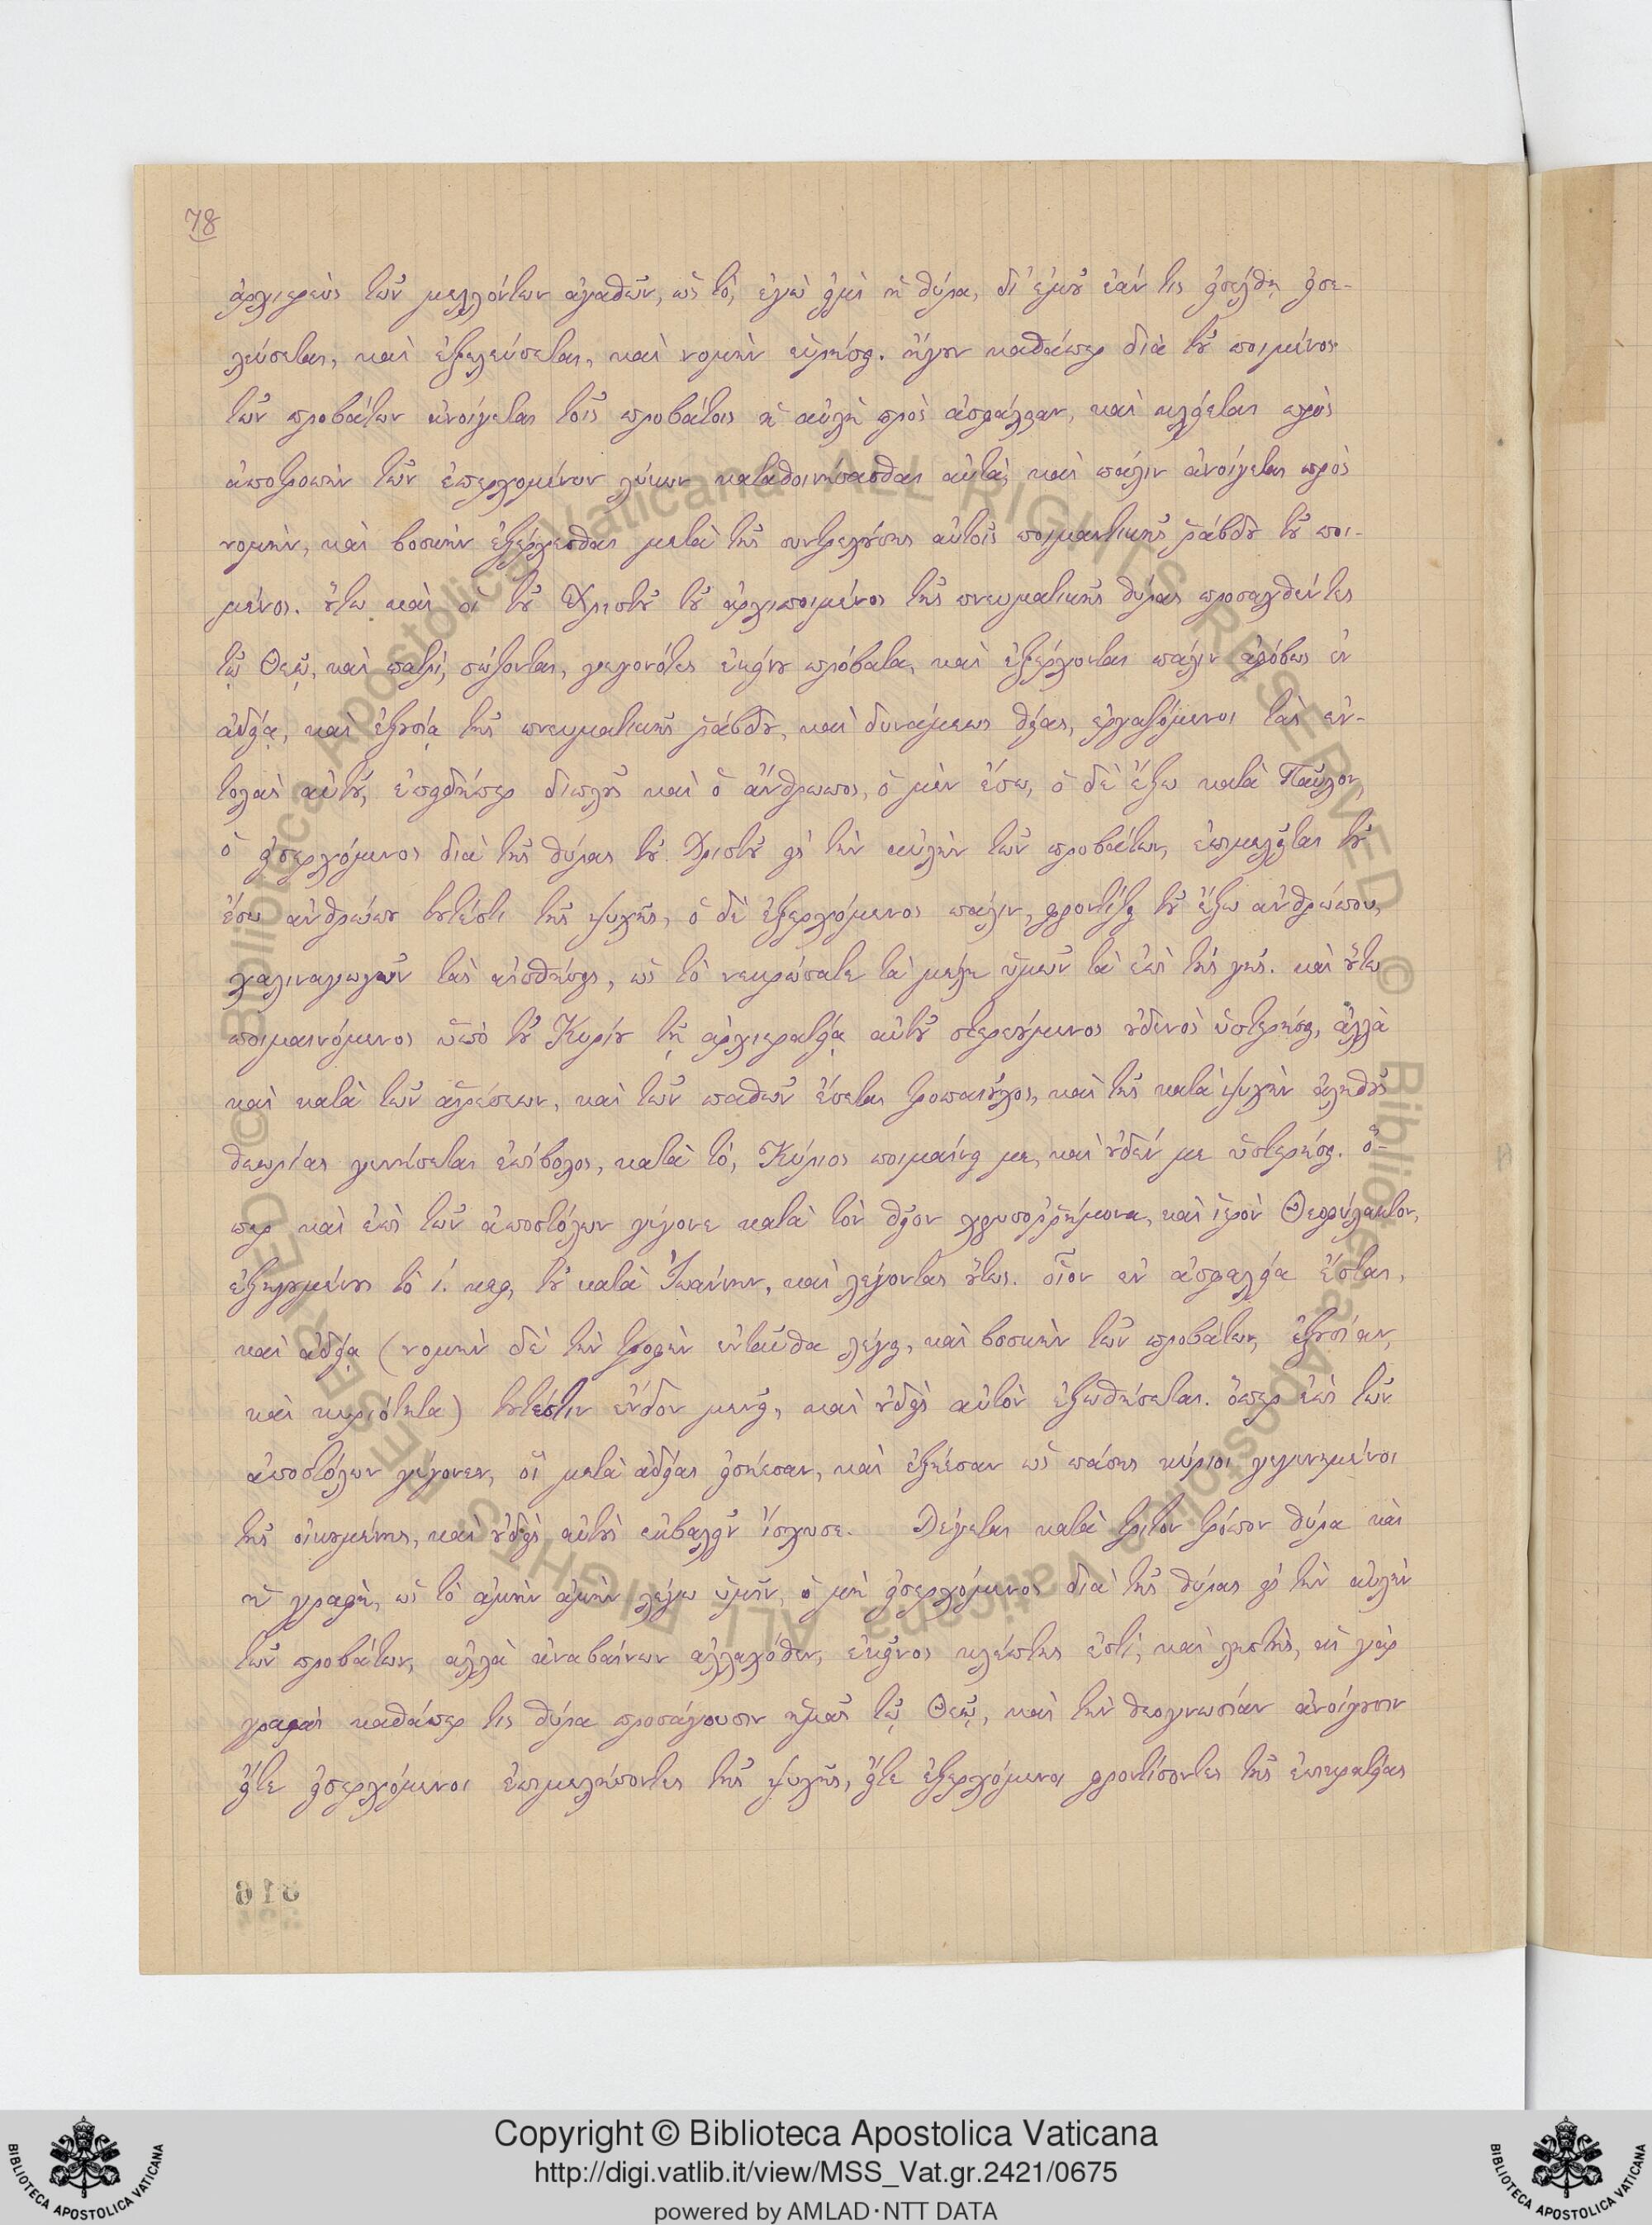 78
ἀρχιερεὺς τῶν μελλόντων ἀγαθῶν, ὡς τό, ἐγὼ εἰμὶ ἡ θύρα, δι' ἐμοῦ ἐάν τις εἰσέλθῃ εἰσε-
λεύσεται, καὶ ἐξελεύσεται, καὶ νομὴν εὑρήσει. ἤγουν καθάπερ διὰ τοῦ ποιμένος
τῶν προβάτων ἀνοίγεται τοῖς προβάτοις ἡ αὐλὴ πρὸς ἀσφάλειαν, καὶ κλείεται πρὸς
ἀποτροπὴν τῶν ἐπερχομένων λύκων καταθοινήσασθαι αὐτά, καὶ πάλιν ἀνοίγεται πρὸς
νομήν, καὶ βοσκὴν ἐξέρχεσθαι μετὰ τῆς συντρεχούσης αὐτοῖς ποιμαντικῆς ῥάβδου τοῦ ποι-
μένος. οὕτω καὶ οἱ τοῦ Χριστοῦ τοῦ ἀρχιποιμένος τῆς πνευματικῆς θύρας προσαχθέντες
τῷ Θεῷ, καὶ πατρί, σώζονται, γεγονότες ἐκείνου πρόβατα, καὶ ἐξέρχονται πάλιν ἀφόβως ἐν
ἀδείᾳ, καὶ ἐξουσίᾳ τῆς πνευματικῆς ῥάβδου, καὶ δυνάμεως θείας, ἐργαζόμενοι τὰς ἐν-
τολὰς αὐτοῦ, ἐπειδήπερ διπλοῦς καὶ ὁ ἄνθρωπος, ὁ μὲν ἔσω, ὁ δὲ ἔξω κατὰ Παῦλον,
ὁ εἰσερχόμενος διὰ τῆς θύρας τοῦ Χριστοῦ εἰς τὴν αὐλὴν τῶν προβάτων, ἐπιμελεῖται τοῦ
ἔσω ἀνθρώπου τουτέστι τῆς ψυχῆς, ὁ δὲ ἐξερχόμενος πάλιν, φροντίζει τοῦ ἔξω ἀνθρώπου,
χαλιναγωγῶν τὰς αἰσθήσεις, ὡς τὸ νεκρώσατε τὰ μέλη ὑμῶν τὰ ἐπὶ τῆς γῆς. καὶ οὕτω
ποιμαινόμενος ὑπὸ τοῦ Κυρίου τῇ ἀρχιερατείᾳ αὐτοῦ στερεούμενος οὐδενὸς ὑστερήσει, ἀλλὰ
καὶ κατὰ τῶν αἱρέσεων, καὶ τῶν παθῶν ἔσεται τροπαιοῦχος, καὶ τῆς κατὰ ψυχὴν ἀληθοῦς
θεωρίας γενήσεται ἐπίβολος, κατὰ τό, Κύριος ποιμαίνει με, καὶ οὐδέν με ὑστερήσει. ὅ-
περ καὶ ἐπὶ τῶν ἀποστόλων γέγονε κατὰ τὸν θεῖον χρυσοῤῥήμονα, καὶ ἱερὸν Θεοφύλακτον,
ἐξηγουμένους τὸ ί. κεφ. τοῦ κατὰ Ἰωάννην, καὶ λέγοντας οὕτως. οἷον ἐν ἀσφαλείᾳ ἔσται,
καὶ ἀδείᾳ (νομὴν δὲ τὴν τροφὴν ἐνταῦθα λέγει, καὶ βοσκὴν τῶν προβάτων, ἐξουσίαν,
καὶ κυριότητα) τουτέστιν ἔνδον μενεῖ, καὶ οὐδεὶς αὐτὸν ἐξωθήσεται. ὅπερ ἐπὶ τῶν
ἀποστόλων γέγονεν, οἳ μετὰ ἀδείας εἰσῄεσαν, καὶ ἐξῄεσαν ὡς πάσης κύριοι γεγενημένοι
τῆς οἰκουμένης, καὶ οὐδεὶς αὐτοὺς ἐκβαλεῖν ἴσχυσε. Λέγεται κατὰ τρίτον τρόπον θύρα καὶ
ἡ γραφή, ὡς τὸ ἀμὴν ἀμὴν λέγω ὑμῖν, ὁ μὴ εἰσερχόμενος διὰ τῆς θύρας εἰς τὴν αὐλὴν
τῶν προβάτων, ἀλλὰ ἀναβαίνων ἀλλαχόθεν, ἐκεῖνος κλέπτης ἐστί, καὶ λῃστής, αἱ γὰρ
γραφαὶ καθάπερ τις θύρα προσάγουσιν ἡμᾶς τῷ Θεῷ, καὶ τὴν θεογνωσίαν ἀνοίγουσιν
εἴτε εἰσερχόμενοι ἐπιμελήσοντες τῆς ψυχῆς, εἴτε ἐξερχόμενοι φροντίσοντες τῆς ἐπικρατείας
© Biblioteca Apostolica Vaticana ALL RIGHTS RESERVED
Copyright © Biblioteca Apostolica Vaticana
http://digi.vatlib.it/view/MSS_Vat.gr.2421/0675
powered by AMLAD·NTT DATA
BIBLIOTECA APOSTOLICA VATICANA
BIBLIOTECA APOSTOLICA VATICANA